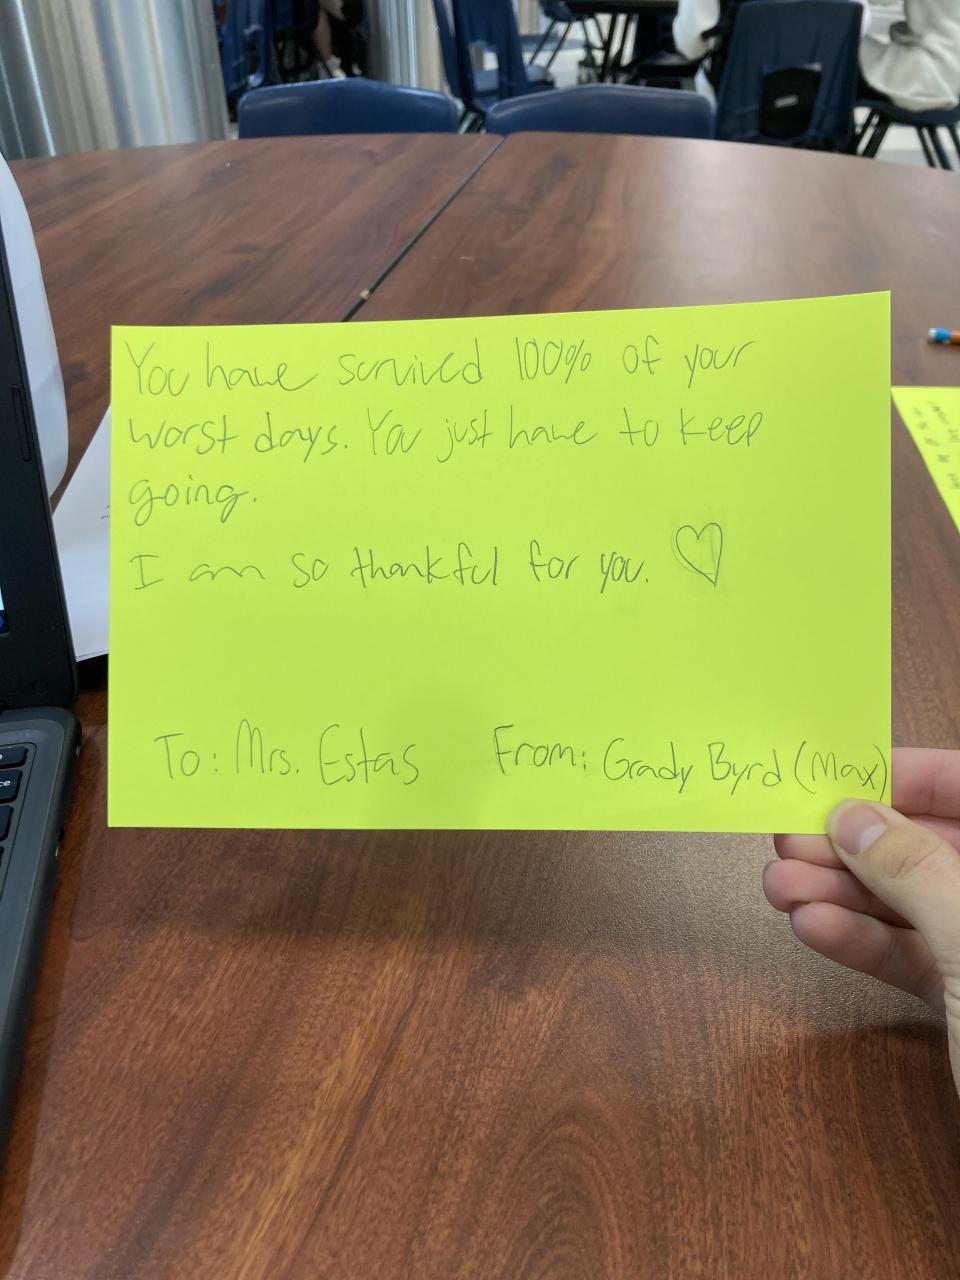 You have survived 100% of your
worst days. You just have to keep
going.
I am so thankful for you. ♡
To: Mrs. Estas From: Grady Byrd (Max)